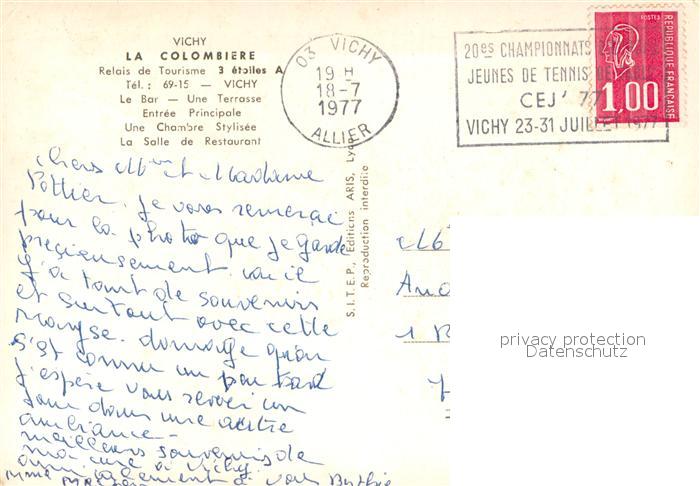 VICHY
LA COLOMBIÈRE
Relais de Tourisme 3 étoiles A
Tél. : 69-15 — VICHY
Le Bar — Une Terrasse
Entrée Principale
Une Chambre Stylisée
La Salle de Restaurant
03 VICHY
19 H
18-7
1977
ALLIER
20es CHAMPIONNATS
JEUNES DE TENNIS DE
CEJ' 77
VICHY 23-31 JUILLET 1977
POSTES
REPUBLIQUE FRANÇAISE
1,00
chers Mr et Madame
Pottier. je vous remerci
pour la photo que je garde
precieusement car il
y a tout de souvenirs
et surtout avec cette
maryse. domage qu'on
s'est connu un peu tard
j'espère vous revoir un
jour dans une autre
ambiance -
meilleurs souvenirs de
ma cure à Vichy.
amicalement à vous
S.I.T.E.P., Editions ARIS, Lyon
Reproduction interdite
And
1
privacy protection
Datenschutz